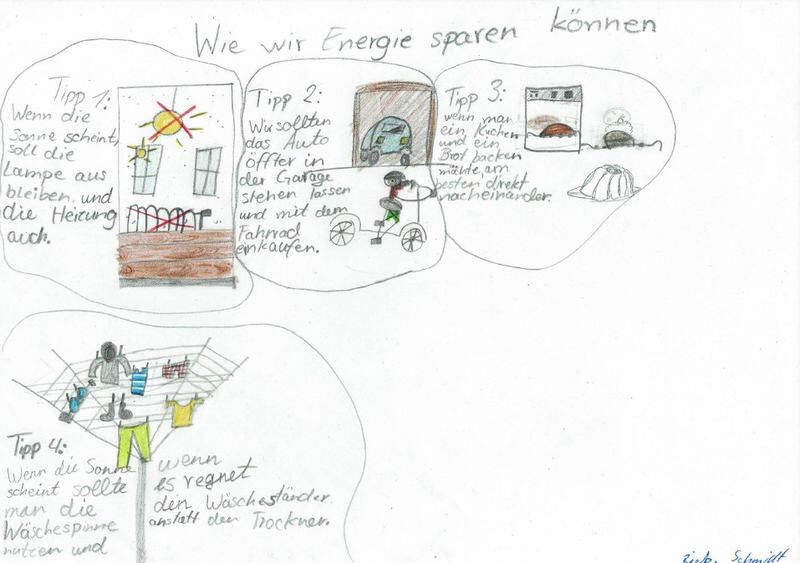 Wie wir Energie sparen können
Tipp 1:
Wenn die
Sonne scheint,
soll die
Lampe aus
bleiben und
die Heizung
auch.
Tipp 2:
Wir sollten
das Auto
öffter in
der Garage
stehen lassen
und mit dem
Fahrrad
einkaufen.
Tipp 3:
wenn man
ein Kuchen
und ein
Brot backen
möchte am
besten direkt
nacheinander.
Tipp 4:
Wenn die Sonne
scheint sollte
man die
Wäschespinne
nutzen und
wenn
es regnet
den Wäscheständer
anstatt den Trockner.
Schmidt